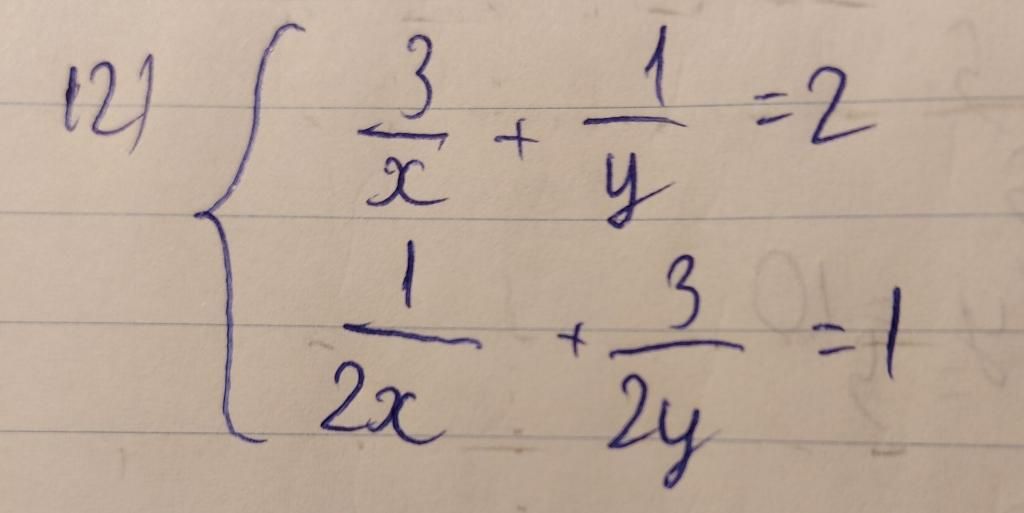 12) { 3/x + 1/y = 2
1/2x + 3/2y = 1